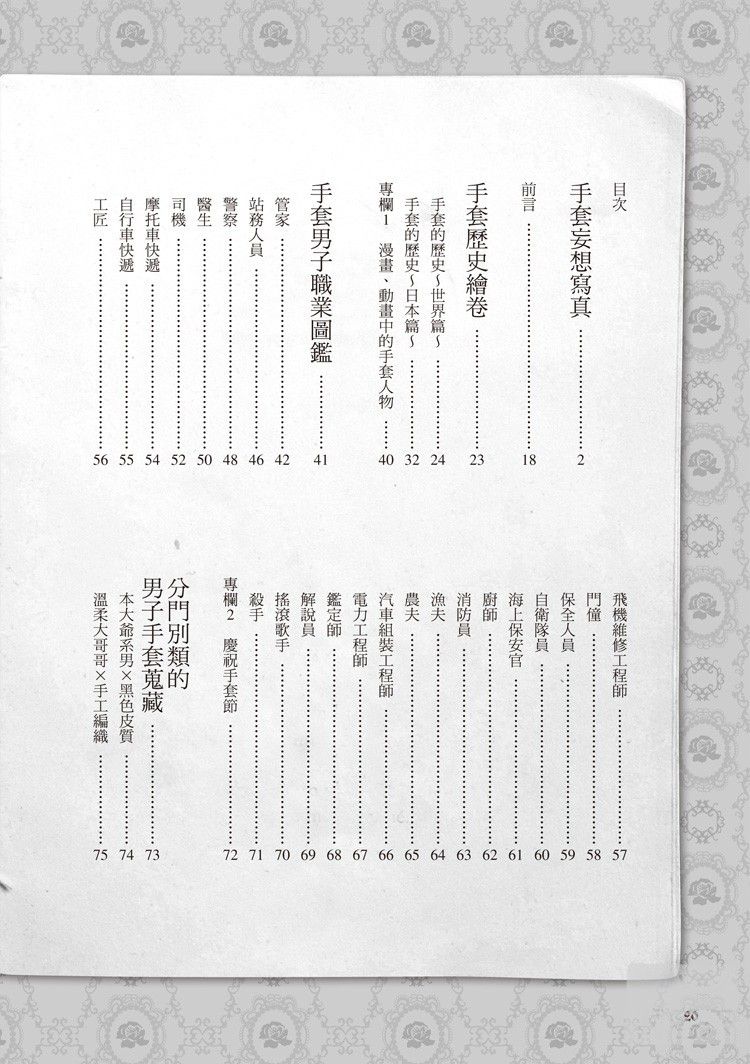 目次
手套妄想寫真 …… 2
前言 …… 18
手套歷史繪卷 …… 23
手套的歷史～世界篇～ …… 24
手套的歷史～日本篇～ …… 32
專欄1 漫畫、動畫中的手套人物 …… 40
手套男子職業圖鑑 …… 41
管家 …… 42
站務人員 …… 46
警察 …… 48
醫生 …… 50
司機 …… 52
摩托車快遞 …… 54
自行車快遞 …… 55
工匠 …… 56
飛機維修工程師 …… 57
門僮 …… 58
保全人員 …… 59
自衛隊員 …… 60
海上保安官 …… 61
廚師 …… 62
消防員 …… 63
漁夫 …… 64
農夫 …… 65
汽車組裝工程師 …… 66
電力工程師 …… 67
鑑定師 …… 68
解說員 …… 69
搖滾歌手 …… 70
殺手 …… 71
專欄2 慶祝手套節 …… 72
分門別類的
男子手套蒐藏 …… 73
本大爺系男×黑色皮質 …… 74
溫柔大哥哥×手工編織 …… 75
20